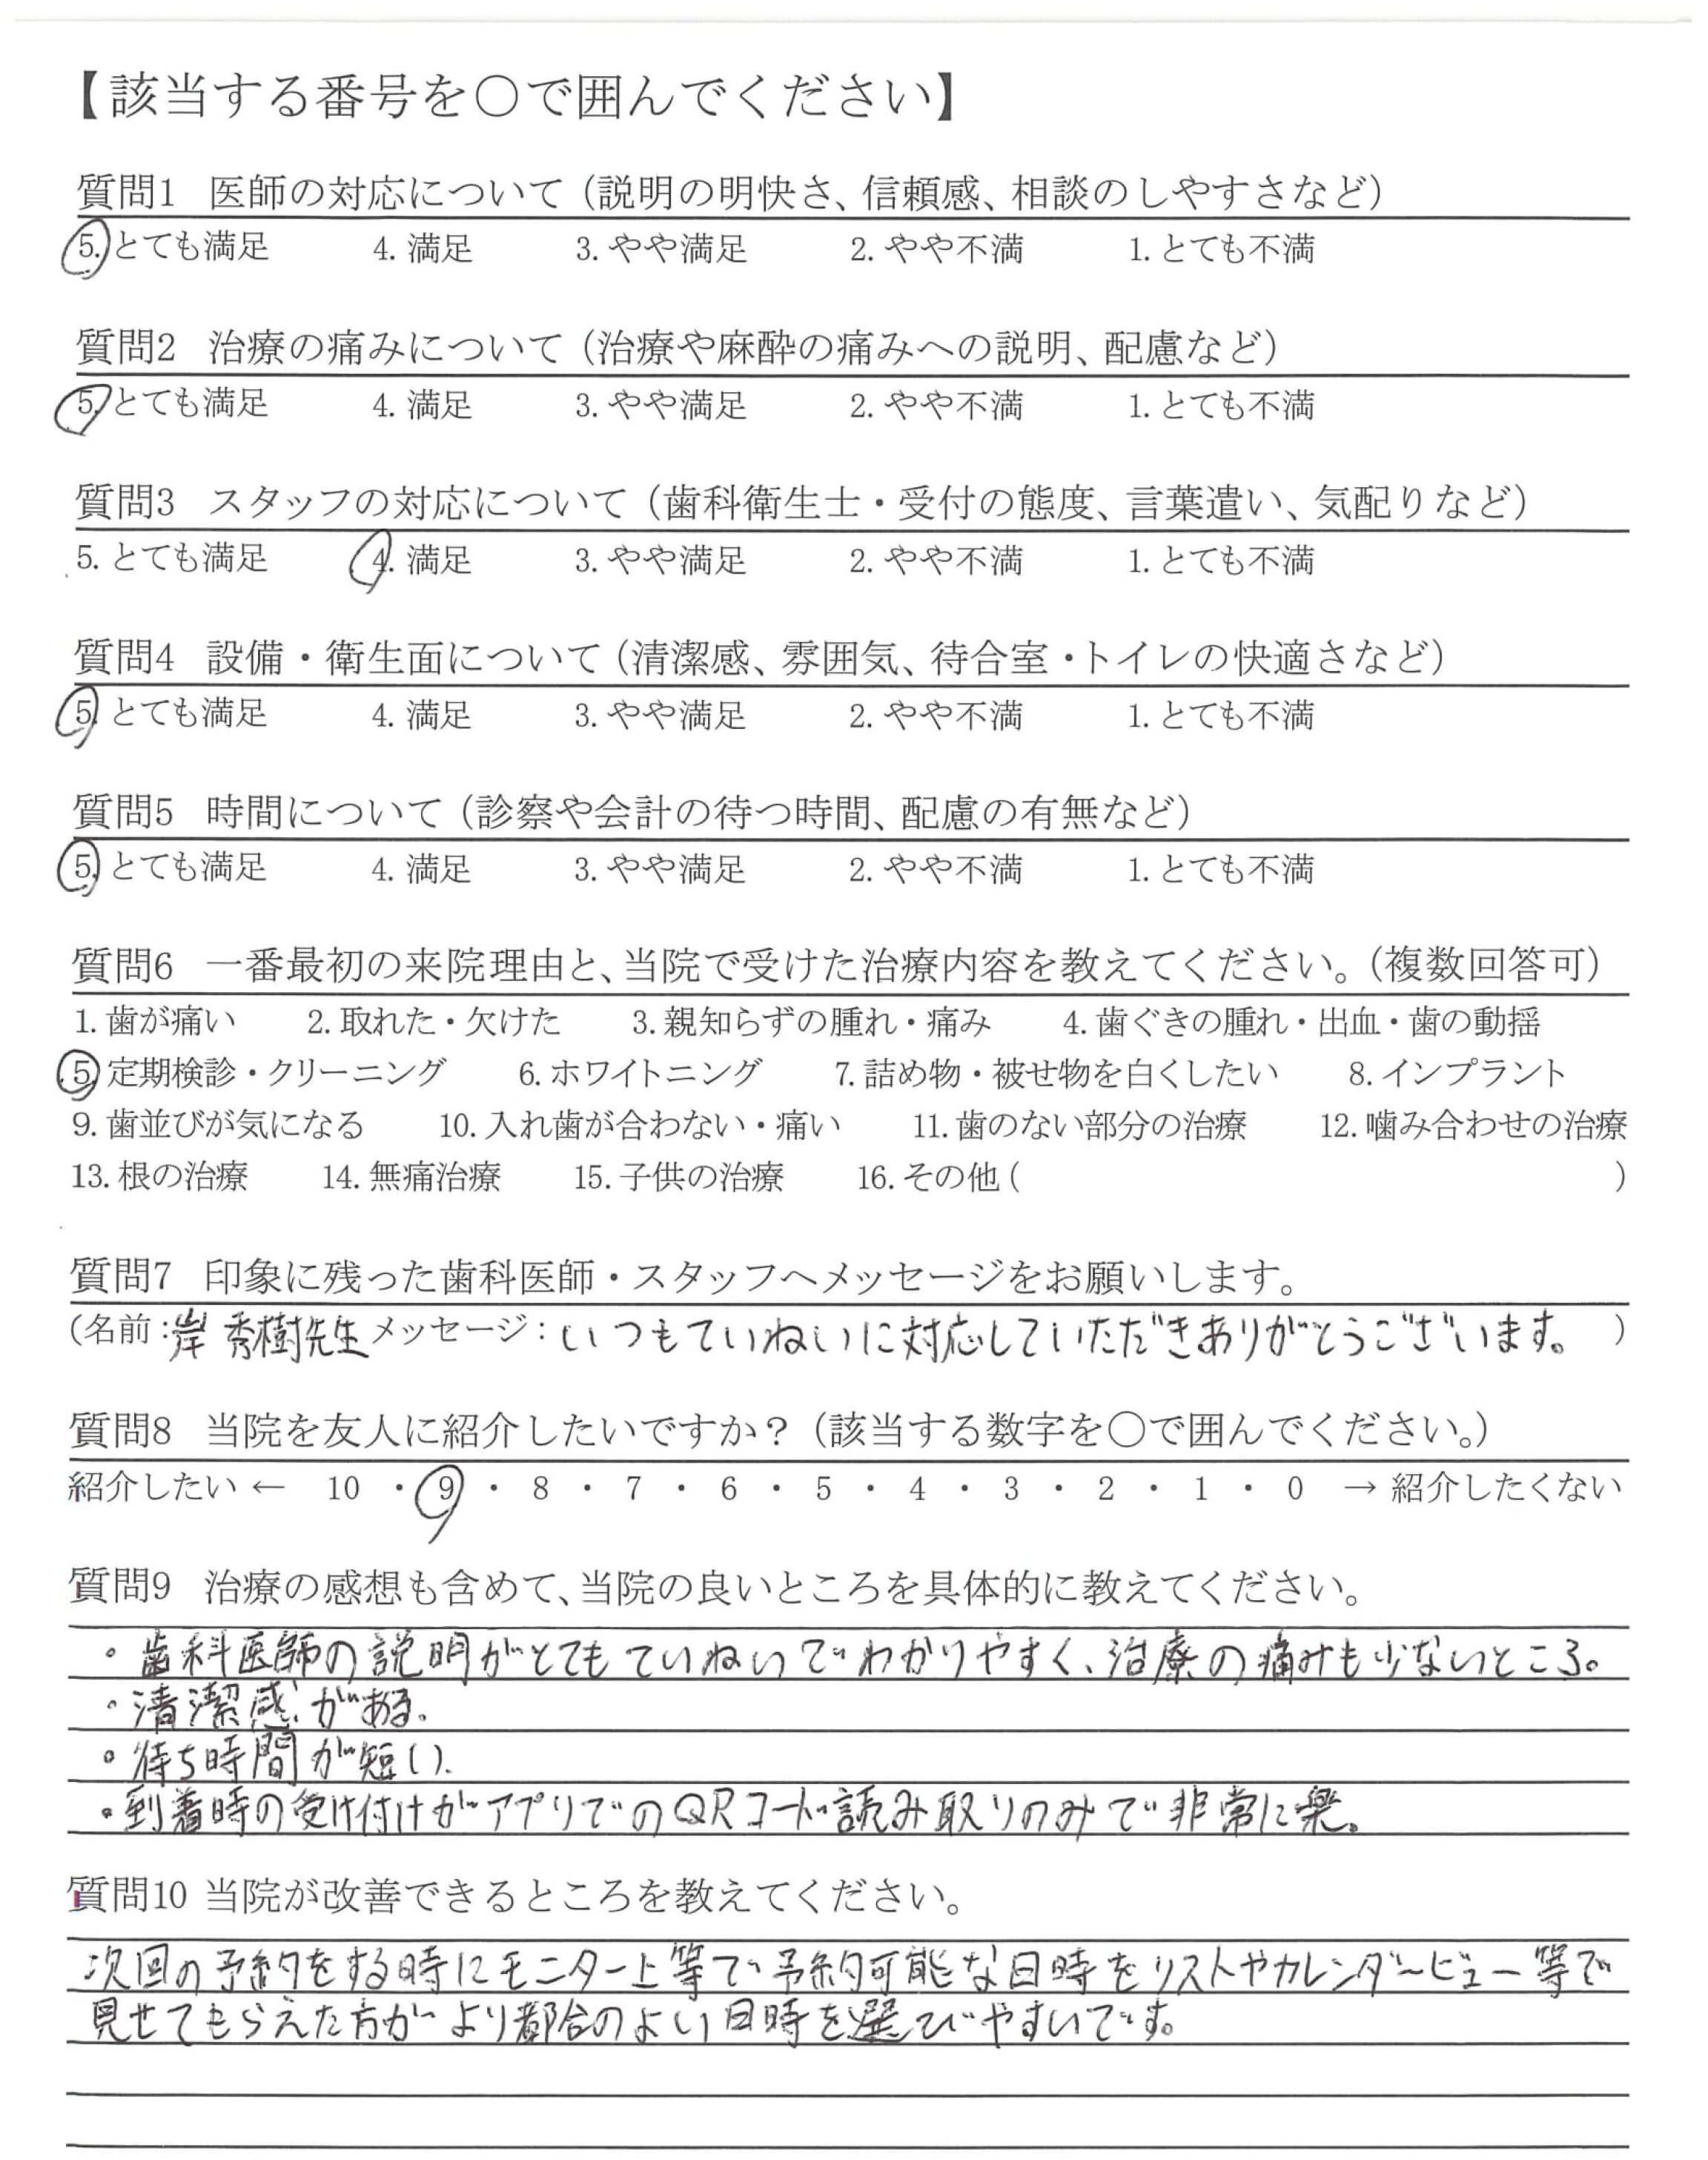 【該当する番号を〇で囲んでください】
質問1 医師の対応について（説明の明快さ、信頼感、相談のしやすさなど）
5. とても満足 4. 満足 3. やや満足 2. やや不満 1. とても不満
質問2 治療の痛みについて（治療や麻酔の痛みへの説明、配慮など）
5. とても満足 4. 満足 3. やや満足 2. やや不満 1. とても不満
質問3 スタッフの対応について（歯科衛生士・受付の態度、言葉遣い、気配りなど）
5. とても満足 4. 満足 3. やや満足 2. やや不満 1. とても不満
質問4 設備・衛生面について（清潔感、雰囲気、待合室・トイレの快適さなど）
5. とても満足 4. 満足 3. やや満足 2. やや不満 1. とても不満
質問5 時間について（診察や会計の待つ時間、配慮の有無など）
5. とても満足 4. 満足 3. やや満足 2. やや不満 1. とても不満
質問6 一番最初の来院理由と、当院で受けた治療内容を教えてください。（複数回答可）
1. 歯が痛い 2. 取れた・欠けた 3. 親知らずの腫れ・痛み 4. 歯ぐきの腫れ・出血・歯の動揺
5. 定期検診・クリーニング 6. ホワイトニング 7. 詰め物・被せ物を白くしたい 8. インプラント
9. 歯並びが気になる 10. 入れ歯が合わない・痛い 11. 歯のない部分の治療 12. 噛み合わせの治療
13. 根の治療 14. 無痛治療 15. 子供の治療 16. その他（ ）
質問7 印象に残った歯科医師・スタッフへメッセージをお願いします。
（名前：岸 秀樹先生 メッセージ：いつもていねいに対応していただきありがとうございます。 ）
質問8 当院を友人に紹介したいですか？（該当する数字を〇で囲んでください。）
紹介したい ← 10 ・ 9 ・ 8 ・ 7 ・ 6 ・ 5 ・ 4 ・ 3 ・ 2 ・ 1 ・ 0 → 紹介したくない
質問9 治療の感想も含めて、当院の良いところを具体的に教えてください。
・歯科医師の説明がとてもていねいでわかりやすく、治療の痛みも少ないところ。
・清潔感がある。
・待ち時間が短い.
・到着時の受け付けがアプリでのQRコード読み取りのみで非常に楽。
質問10 当院が改善できるところを教えてください。
次回の予約をする時にモニター上等で予約可能な日時をリストやカレンダービュー等で
見せてもらえた方がより都合のよい日時を選びやすいです。